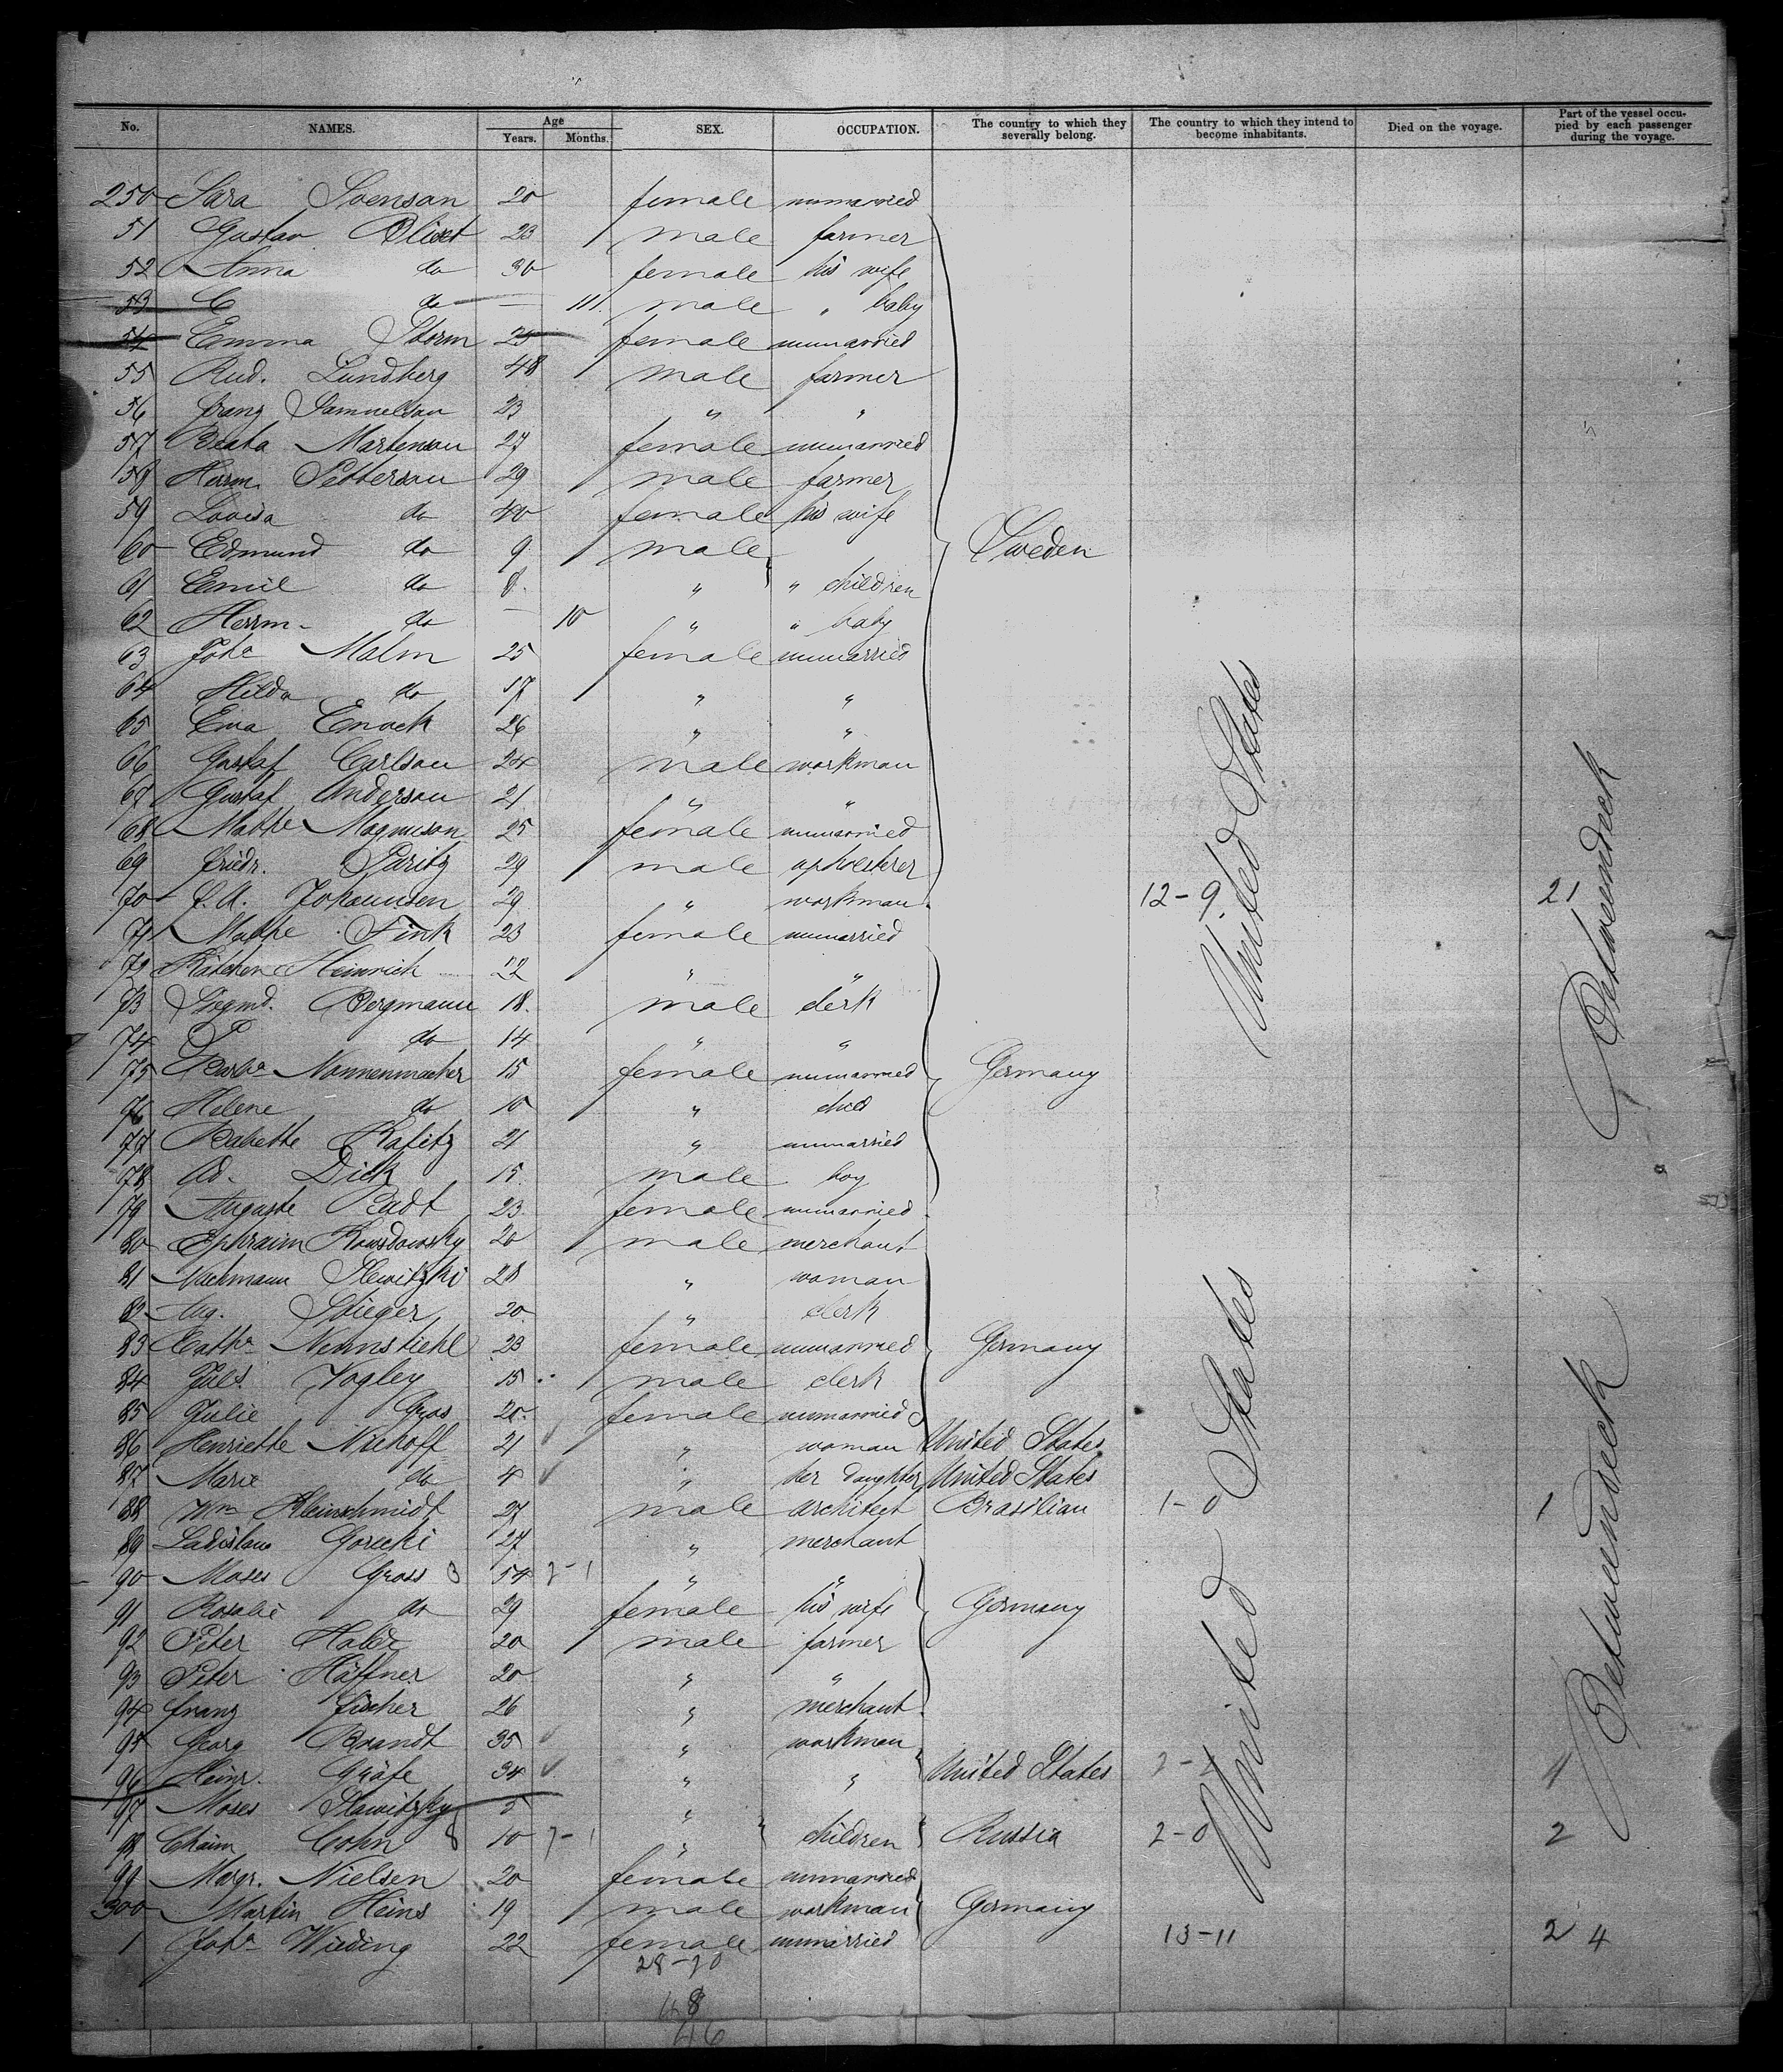 No. NAMES. Age Years. Months. SEX. OCCUPATION. The country to which they severally belong. The country to which they intend to become inhabitants. Died on the voyage. Part of the vessel occupied by each passenger during the voyage.
250 Sara Svenson 20 female unmarried
51 Gustav Blixt 23 male farmer
52 Anna do 30 female his wife
53 C do — 11. male " baby
54 Emma Storm 25 female unmarried
55 Rud. Lundberg 48 male farmer
56 franz Samuelson 23 " "
57 Beata Martenson 27 female unmarried
58 Herrm. Petterson 29 male farmer
59 Lovisa do 40 female his wife
60 Edmund do 9 male Sweden
61 Emil do 8. " " children
62 Herrm. do — 10 " " baby
63 Joha Malm 25 female unmarried
64 Hilda do 17 " "
65 Eva Enock 26 " "
66 Gustaf Carlson 24 male workman
67 Gustaf Anderson 21 " "
68 Mathe Magnuson 25 female unmarried
69 friedr. 29 male upholsterer
70 Johannsen 29 " workman 12-9 United States 21 Betweendeck
71 Mathe Fink 23 female unmarried
72 Kätchen Heinrich 22 " "
73 Siegmd. Bergmann 18. male clerk
74 do 14 " "
75 Barba Nonnenmacher 15 female unmarried Germany
76 Helene do 10 " child
77 Babette Kafitz 21 " unmarried
78 Ad. Dick 15. male boy
79 Auguste Badt 23 female unmarried
80 Ephraim 20 male merchant
81 Nachmann Slewitzki 28 " woman
82 Aug. Stieger 20 " clerk
83 Catha Nennstiehl 23 female unmarried Germany
84 Juls. Vogley 15 male clerk
85 Julie Gros 20. female unmarried
86 Henriette Niehoff 21 " woman United States
87 Marie do 4 " her daughter United States
88 Wm Kleinschmidt 27 male architect Brasilian 1-0 United States 1 Betweendeck
89 Ladislaus Gorecki 27 " merchant
90 Moses Gross 54 " "
91 Rosalie do 29 female his wife Germany
92 Peter 20 male farmer
93 Peter Häffner 20 " "
94 franz fischer 26 " merchant
95 Georg Brandt 35 " workman
96 Heinr. Gräfe 34 " " United States
97 Moses Slawitzky 5 "
98 Chaim Cohn 10 " children Russia 2-0 2
99 Margr. Nielsen 20 female unmarried
300 Martin Heins 19 male workman Germany
1 Joha Wieding 22 female unmarried 13-11 24
28-20
48
46